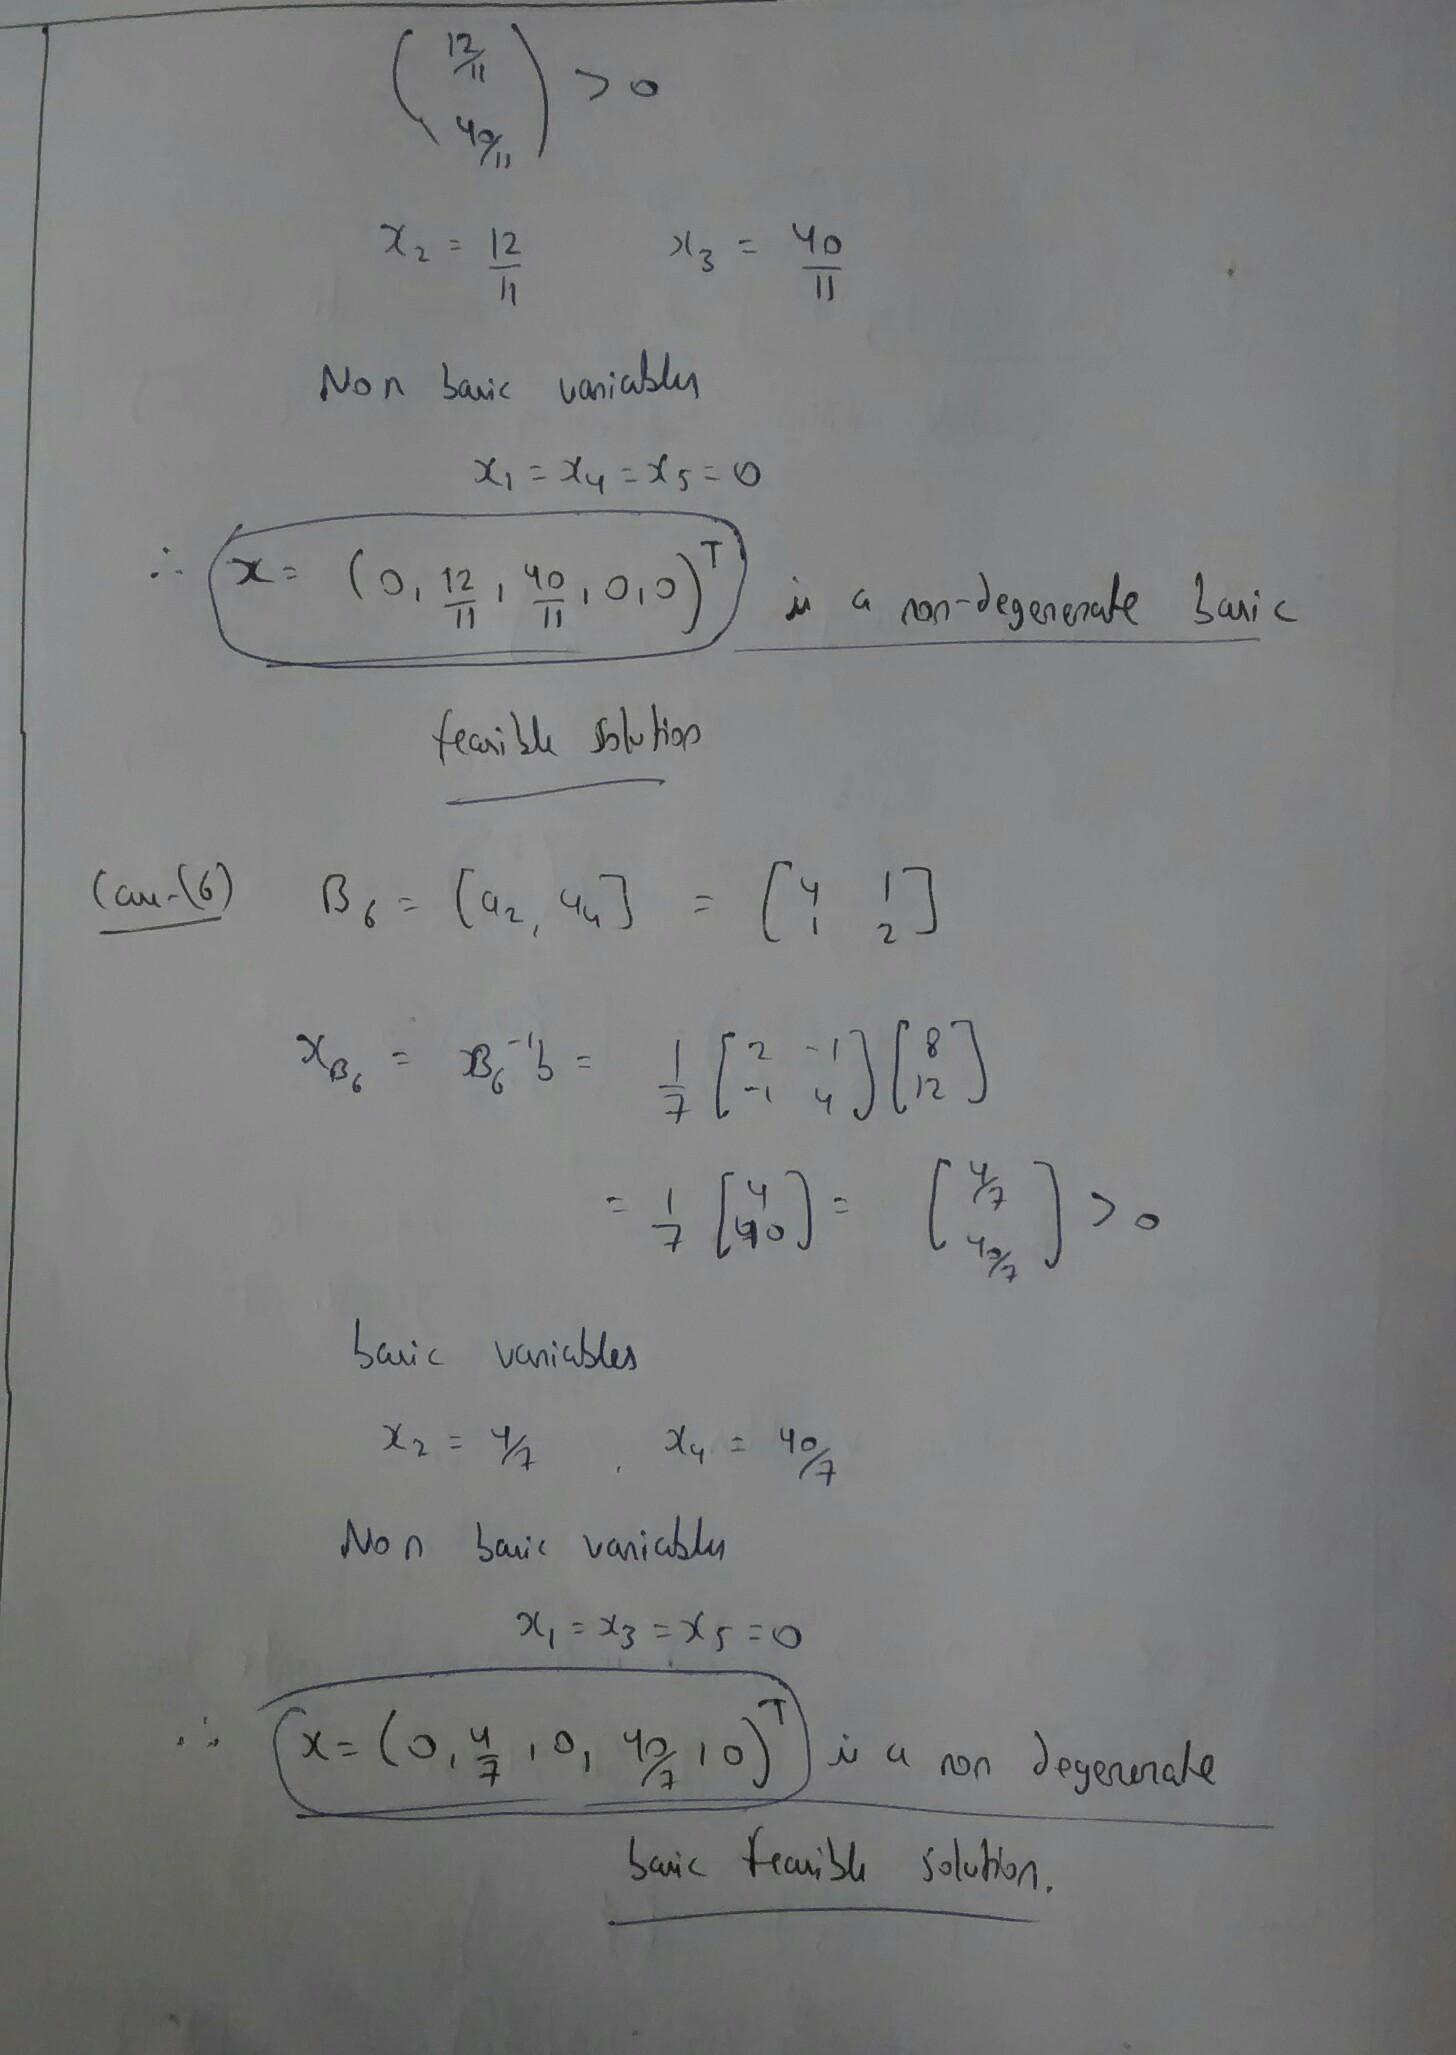 (12/11
40/11) > 0
x₂ = 12/11 x₃ = 40/11
Non basic variables
x₁ = x₄ = x₅ = 0
∴ x = (0, 12/11, 40/11, 0, 0)ᵀ is a non-degenerate basic
feasible solution
Case-(6) B₆ = [a₂, a₄] = [4 1
1 2]
x_B₆ = B₆⁻¹b = 1/7 [2 -1
-1 4] [8
12]
= 1/7 [4
40] = [4/7
40/7] > 0
basic variables
x₂ = 4/7 , x₄ = 40/7
Non basic variables
x₁ = x₃ = x₅ = 0
∴ x = (0, 4/7, 0, 40/7, 0)ᵀ is a non degenerate
basic feasible solution.